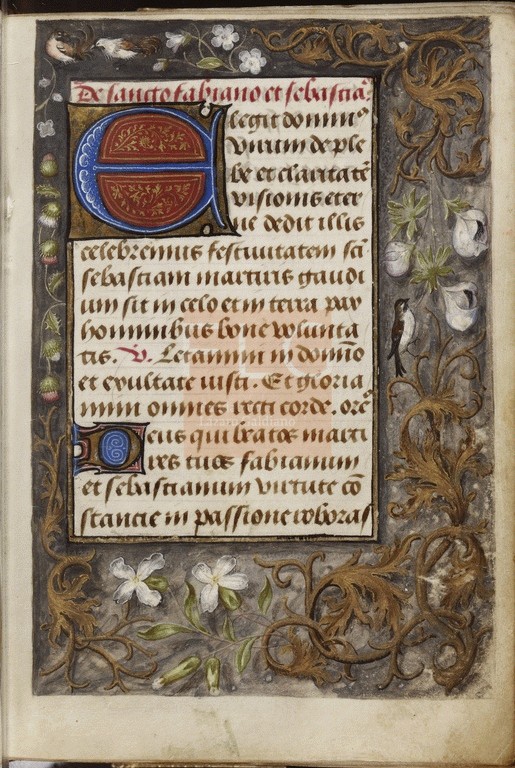 De sancto fabiano et sebastia.
Elegit dominus
virum de ple
be et claritate
visionis eter
ne dedit illis
celebremus festivitatem sci
sebastiani martiris gaudi
um sit in celo et in terra pax
hominibus bone volunta
tis. V. Letamini in domino
et exultate iusti. Et gloria
mini omnes recti corde. ore
Deus qui beatos marti
res tuos fabianum
et sebastianum virtute co
stancie in passione roboras